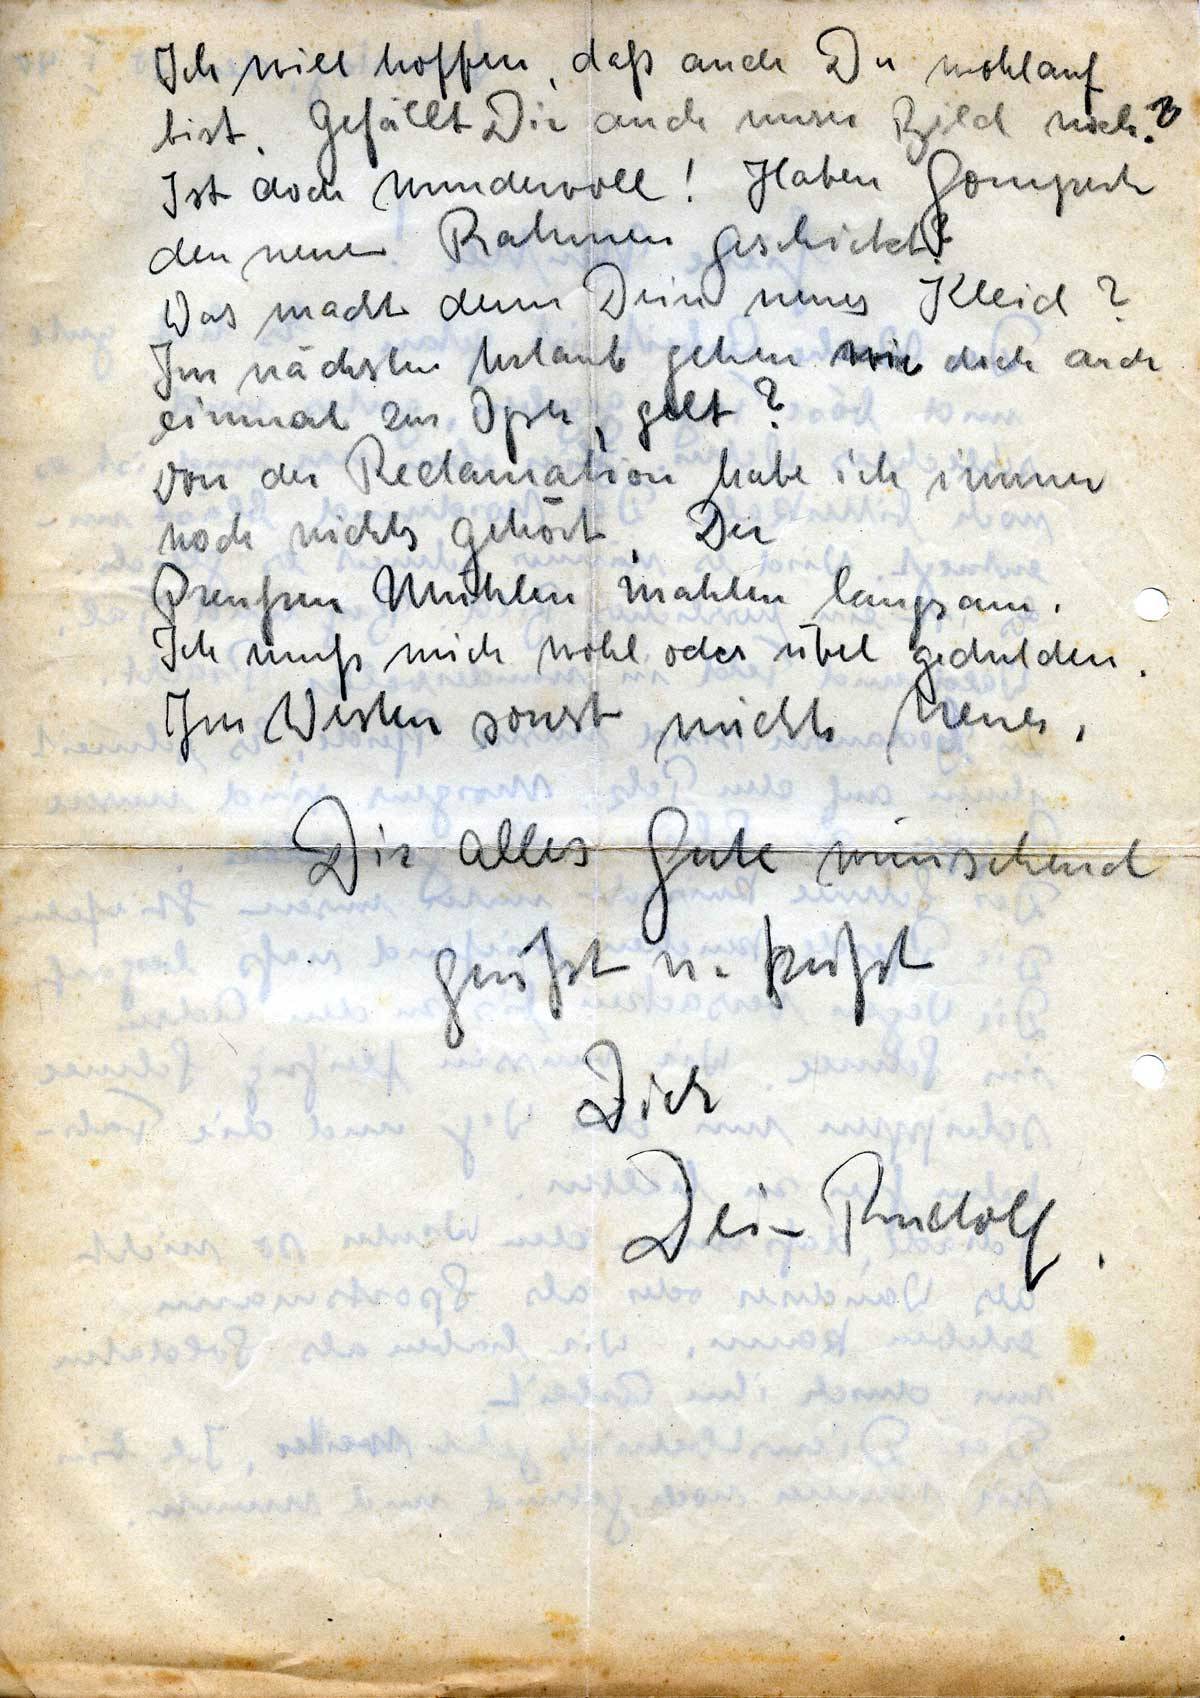 Ich will hoffen, daß auch Du wohlauf
bist. Gefällt Dir auch unser Bild noch?
Ist doch wundervoll! Haben Gompertz
den neuen Rahmen geschickt?
Was macht denn Dein neues Kleid?
Im nächsten Urlaub gehen wir doch auch
einmal zur Oper, gelt?
Von der Reclamation habe ich immer
noch nichts gehört. Die
Preußen Mühlen mahlen langsam.
Ich muß mich wohl oder übel gedulden.
Im Westen sonst nichts Neues,
Dir alles Gute wünschend
grüßt u. küßt
Dich
Dein Rudolf.